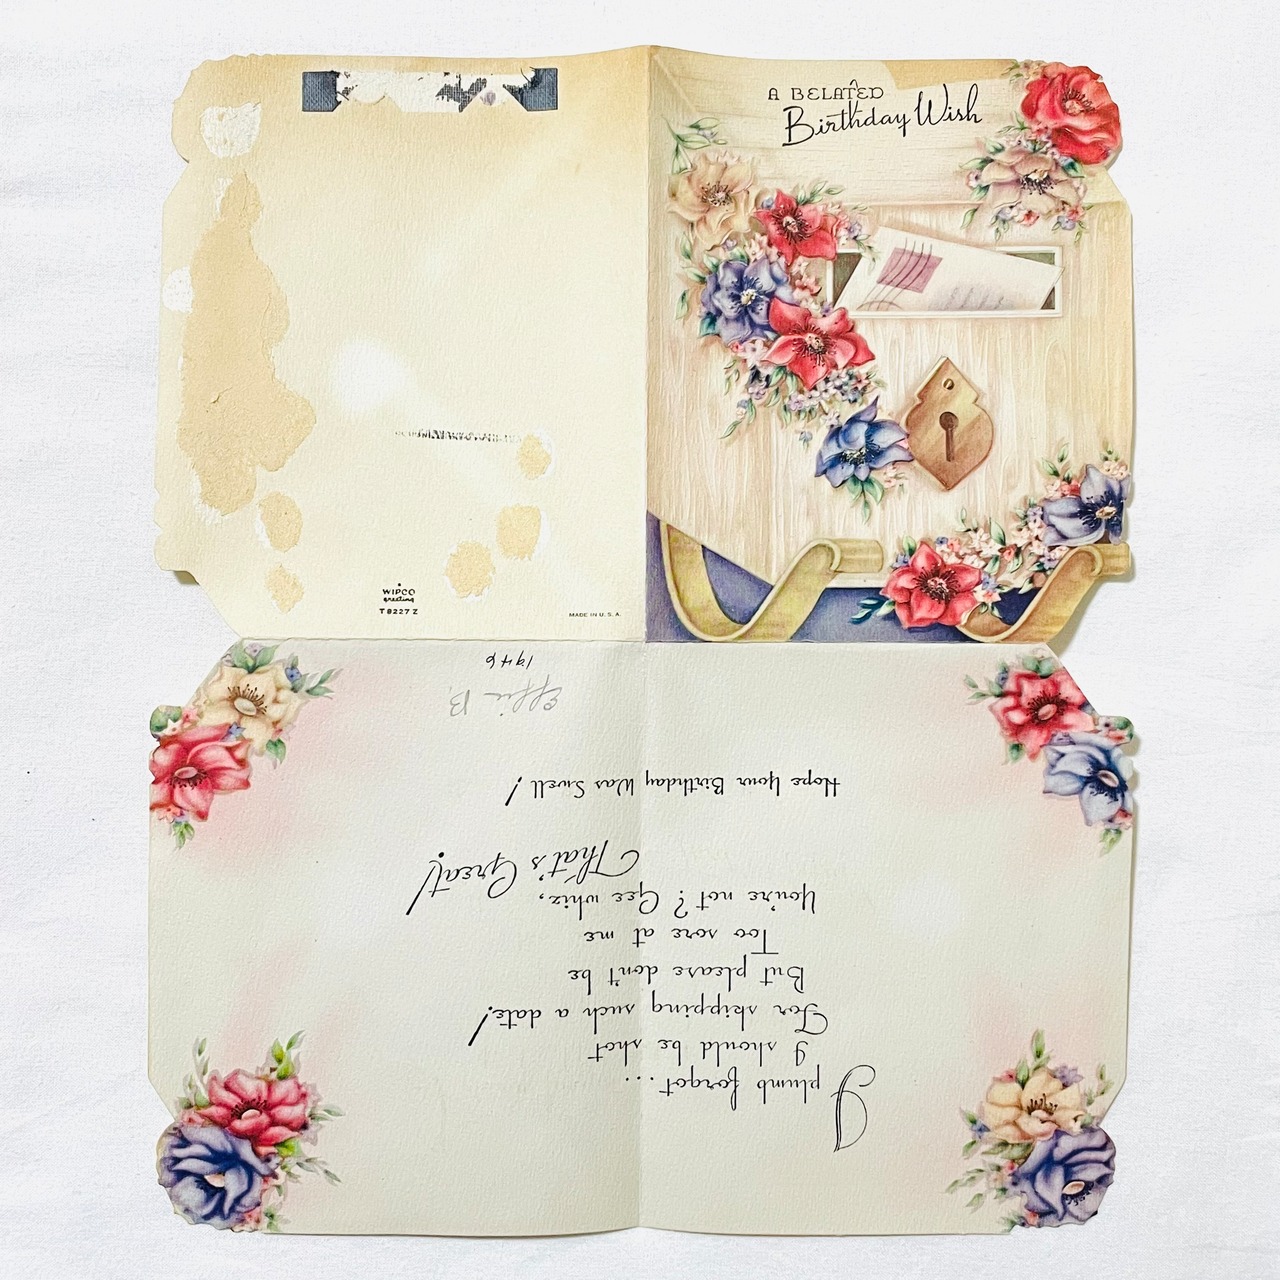 A BELATED
Birthday Wish
WIPCO
greeting
T 8227 Z
MADE IN U. S. A.
I plumb forgot...
I should be shot
For skipping such a date!
But please don't be
Too sore at me
You're not? Gee whiz,
That's Great!
Hope Your Birthday Was Swell!
Effie B.
1946